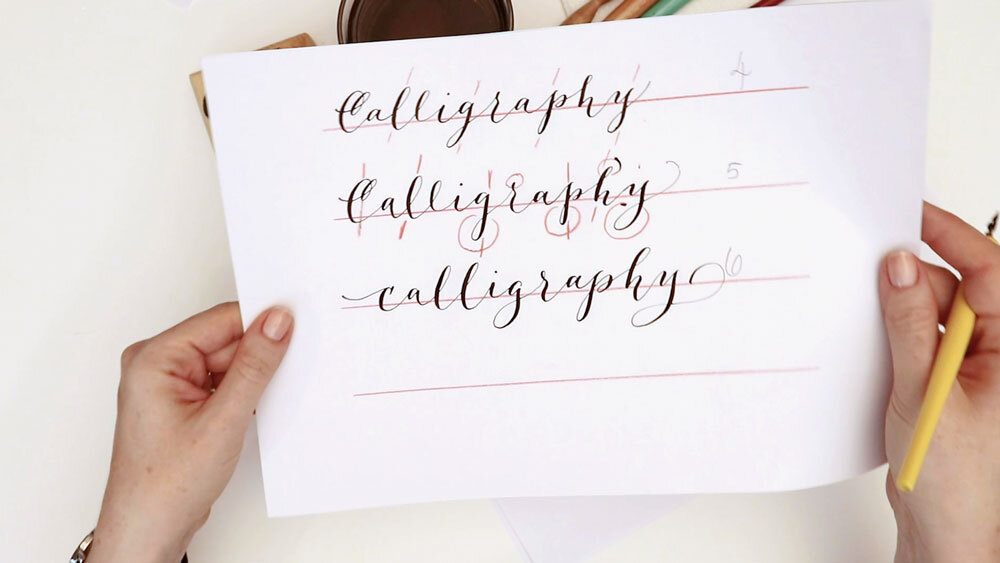 Calligraphy 4
Calligraphy 5
calligraphy 6